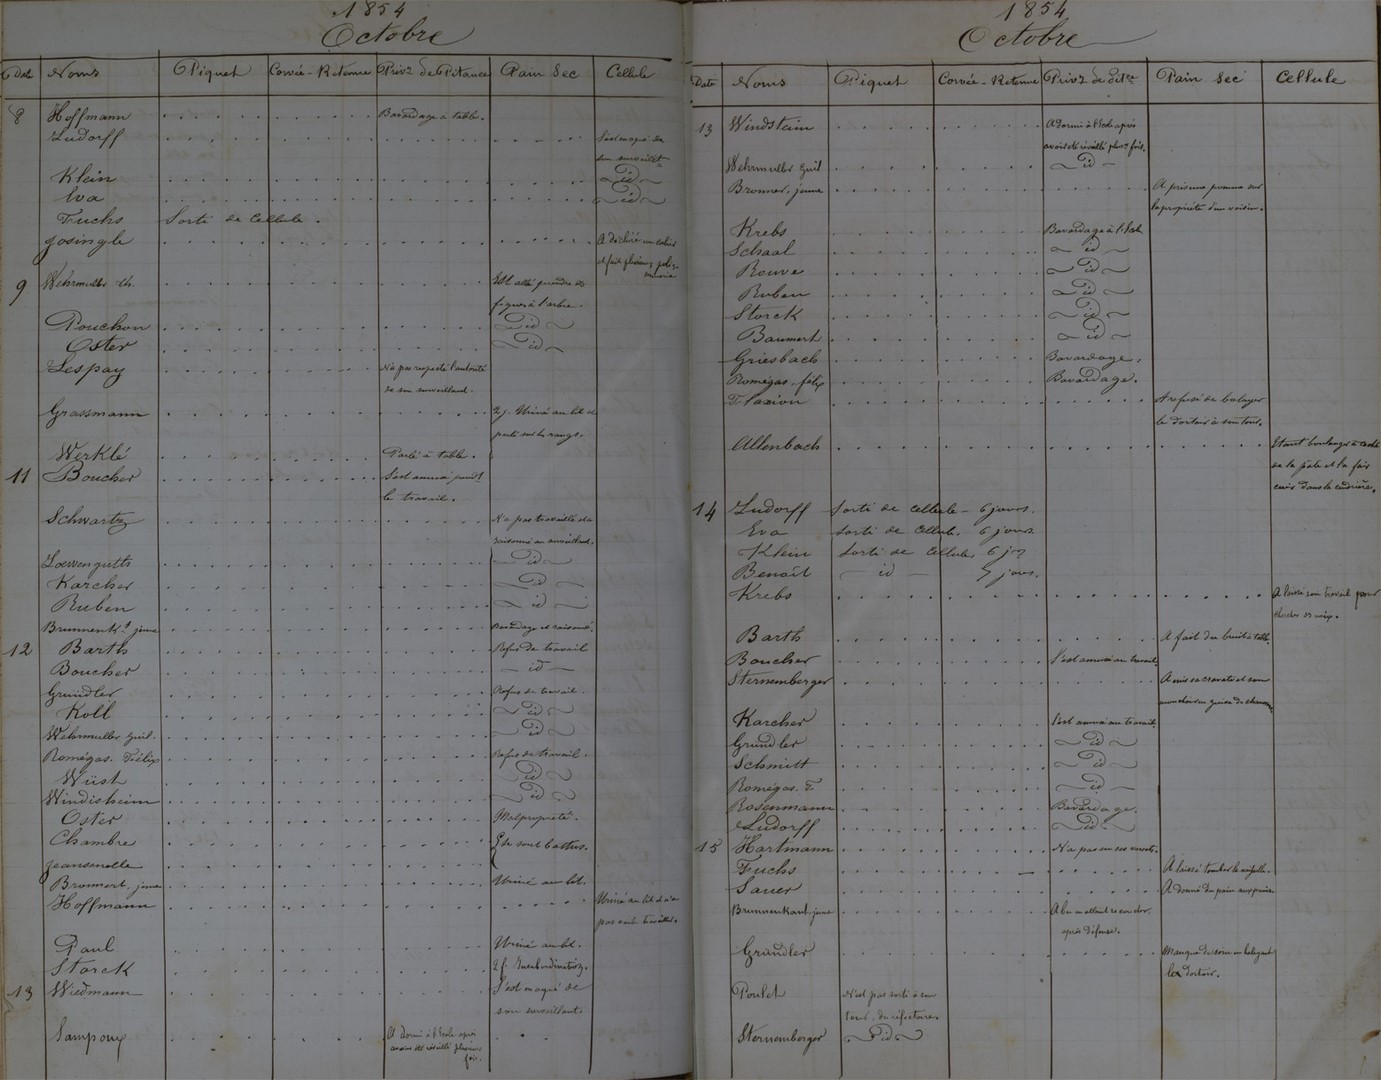 1854
Octobre
Date Noms Piquet Corvée-Retenue Priv.n de Pitance Pain Sec Cellule
8 Hoffmann Bavardage à table.
Ludorff S'est moqué de
son surveillt
Klein id
Eva id
Fuchs Sorti de Cellule.
Josingle A déchiré un cahier
et fait plusieurs
9 Wehrmuller Ch. Est allé prendre des
figues à l'arbre.
Pouchon id
Oster id
Lespay N'a pas respecté l'autorité
de son surveillant.
Grassmann 2 j. Uriné au lit et
parlé sur les rangs.
Werklé Parlé à table.
11 Boucher S'est amusé pendt
le travail.
Schwartz N'a pas travaillé et a
raisonné au surveillant.
Loewenguth id
Karcher id
Ruben id
Brunnenkt jeune Bavardage et raisonné.
12 Barth Refus de travail
Boucher id
Grundler Refus de travail.
Koll id
Wehrmuller Guil. id
Romégas. Félix Refus de travail.
Wüst id
Windisheim id
Oster Malpropreté.
Chambre Se sont battus.
Jeansenelle
Bronnert, jeune Uriné au lit.
Hoffmann Uriné au lit et n'a
pas voulu travailler.
Paul Uriné au lit.
Storck 2 j. Insubordination.
13 Wiedmann S'est moqué de
son surveillant.
Sampoux A dormi à l'Ecole après
avoir été réveillé plusieurs
fois.
1854
Octobre
Date Noms Piquet Corvée-Retenue Priv.n de Pit.ce Pain Sec Cellule
13 Windstein A dormi à l'Ecole après
avoir été réveillé plusrs fois.
Wehrmuller Guil id
Bronner, jeune A pris une pomme sur
la propriété d'un voisin.
Krebs Bavardage à l'Ecole
Schaal id
Reuve id
Ruben id
Storck id
Baumert id
Griesbach Bavardage.
Romégas-félix Bavardage.
Flaxion A refusé de balayer
le dortoir à son tour.
Allenbach Etant boulanger a caché
de la pâte et l'a fait
cuir dans le cendrière.
14 Ludorff Sorti de cellule - 6 jours.
Eva Sorti de Cellule. 6 jours.
Klein Sorti de Cellule, 6 jrs
Benoît id 5 jours.
Krebs A laissé son travail pour
chercher des noix.
Barth A fait du bruit à table
Boucher S'est amusé au travail
Sternemberger A mis sa cravate et son
mouchoir en guise de
Karcher S'est amusé au travail
Grundler id
Schmitt id
Romégas. F. id
Rosenmann Bavardage.
Ludorff id
15 Hartmann N'a pas eu ses
Fuchs A laissé tomber la
Sauer A donné du pain aux punis
Brunnenkant, jeune A bu en allant
après défense.
Grundler Manque de soin en balayant
les dortoir.
Poulet N'est pas sorti à son
tour, du réfectoire.
Sternemberger id